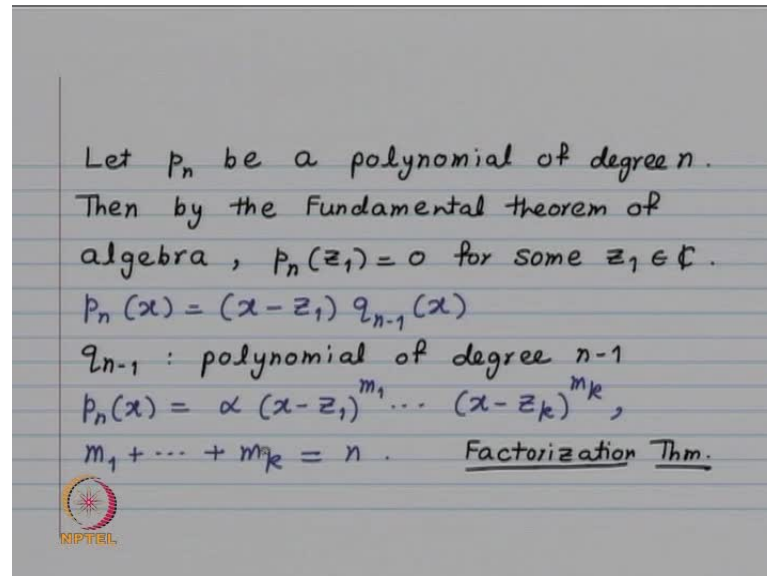 Let pₙ be a polynomial of degree n.
Then by the Fundamental theorem of
algebra, pₙ(z₁) = 0 for some z₁ ∈ ℂ.
pₙ(x) = (x − z₁) qₙ₋₁(x)
qₙ₋₁ : polynomial of degree n-1
pₙ(x) = α (x − z₁)^{m₁} ⋯ (x − z_k)^{m_k},
m₁ + ⋯ + m_k = n. Factorization Thm.
NPTEL